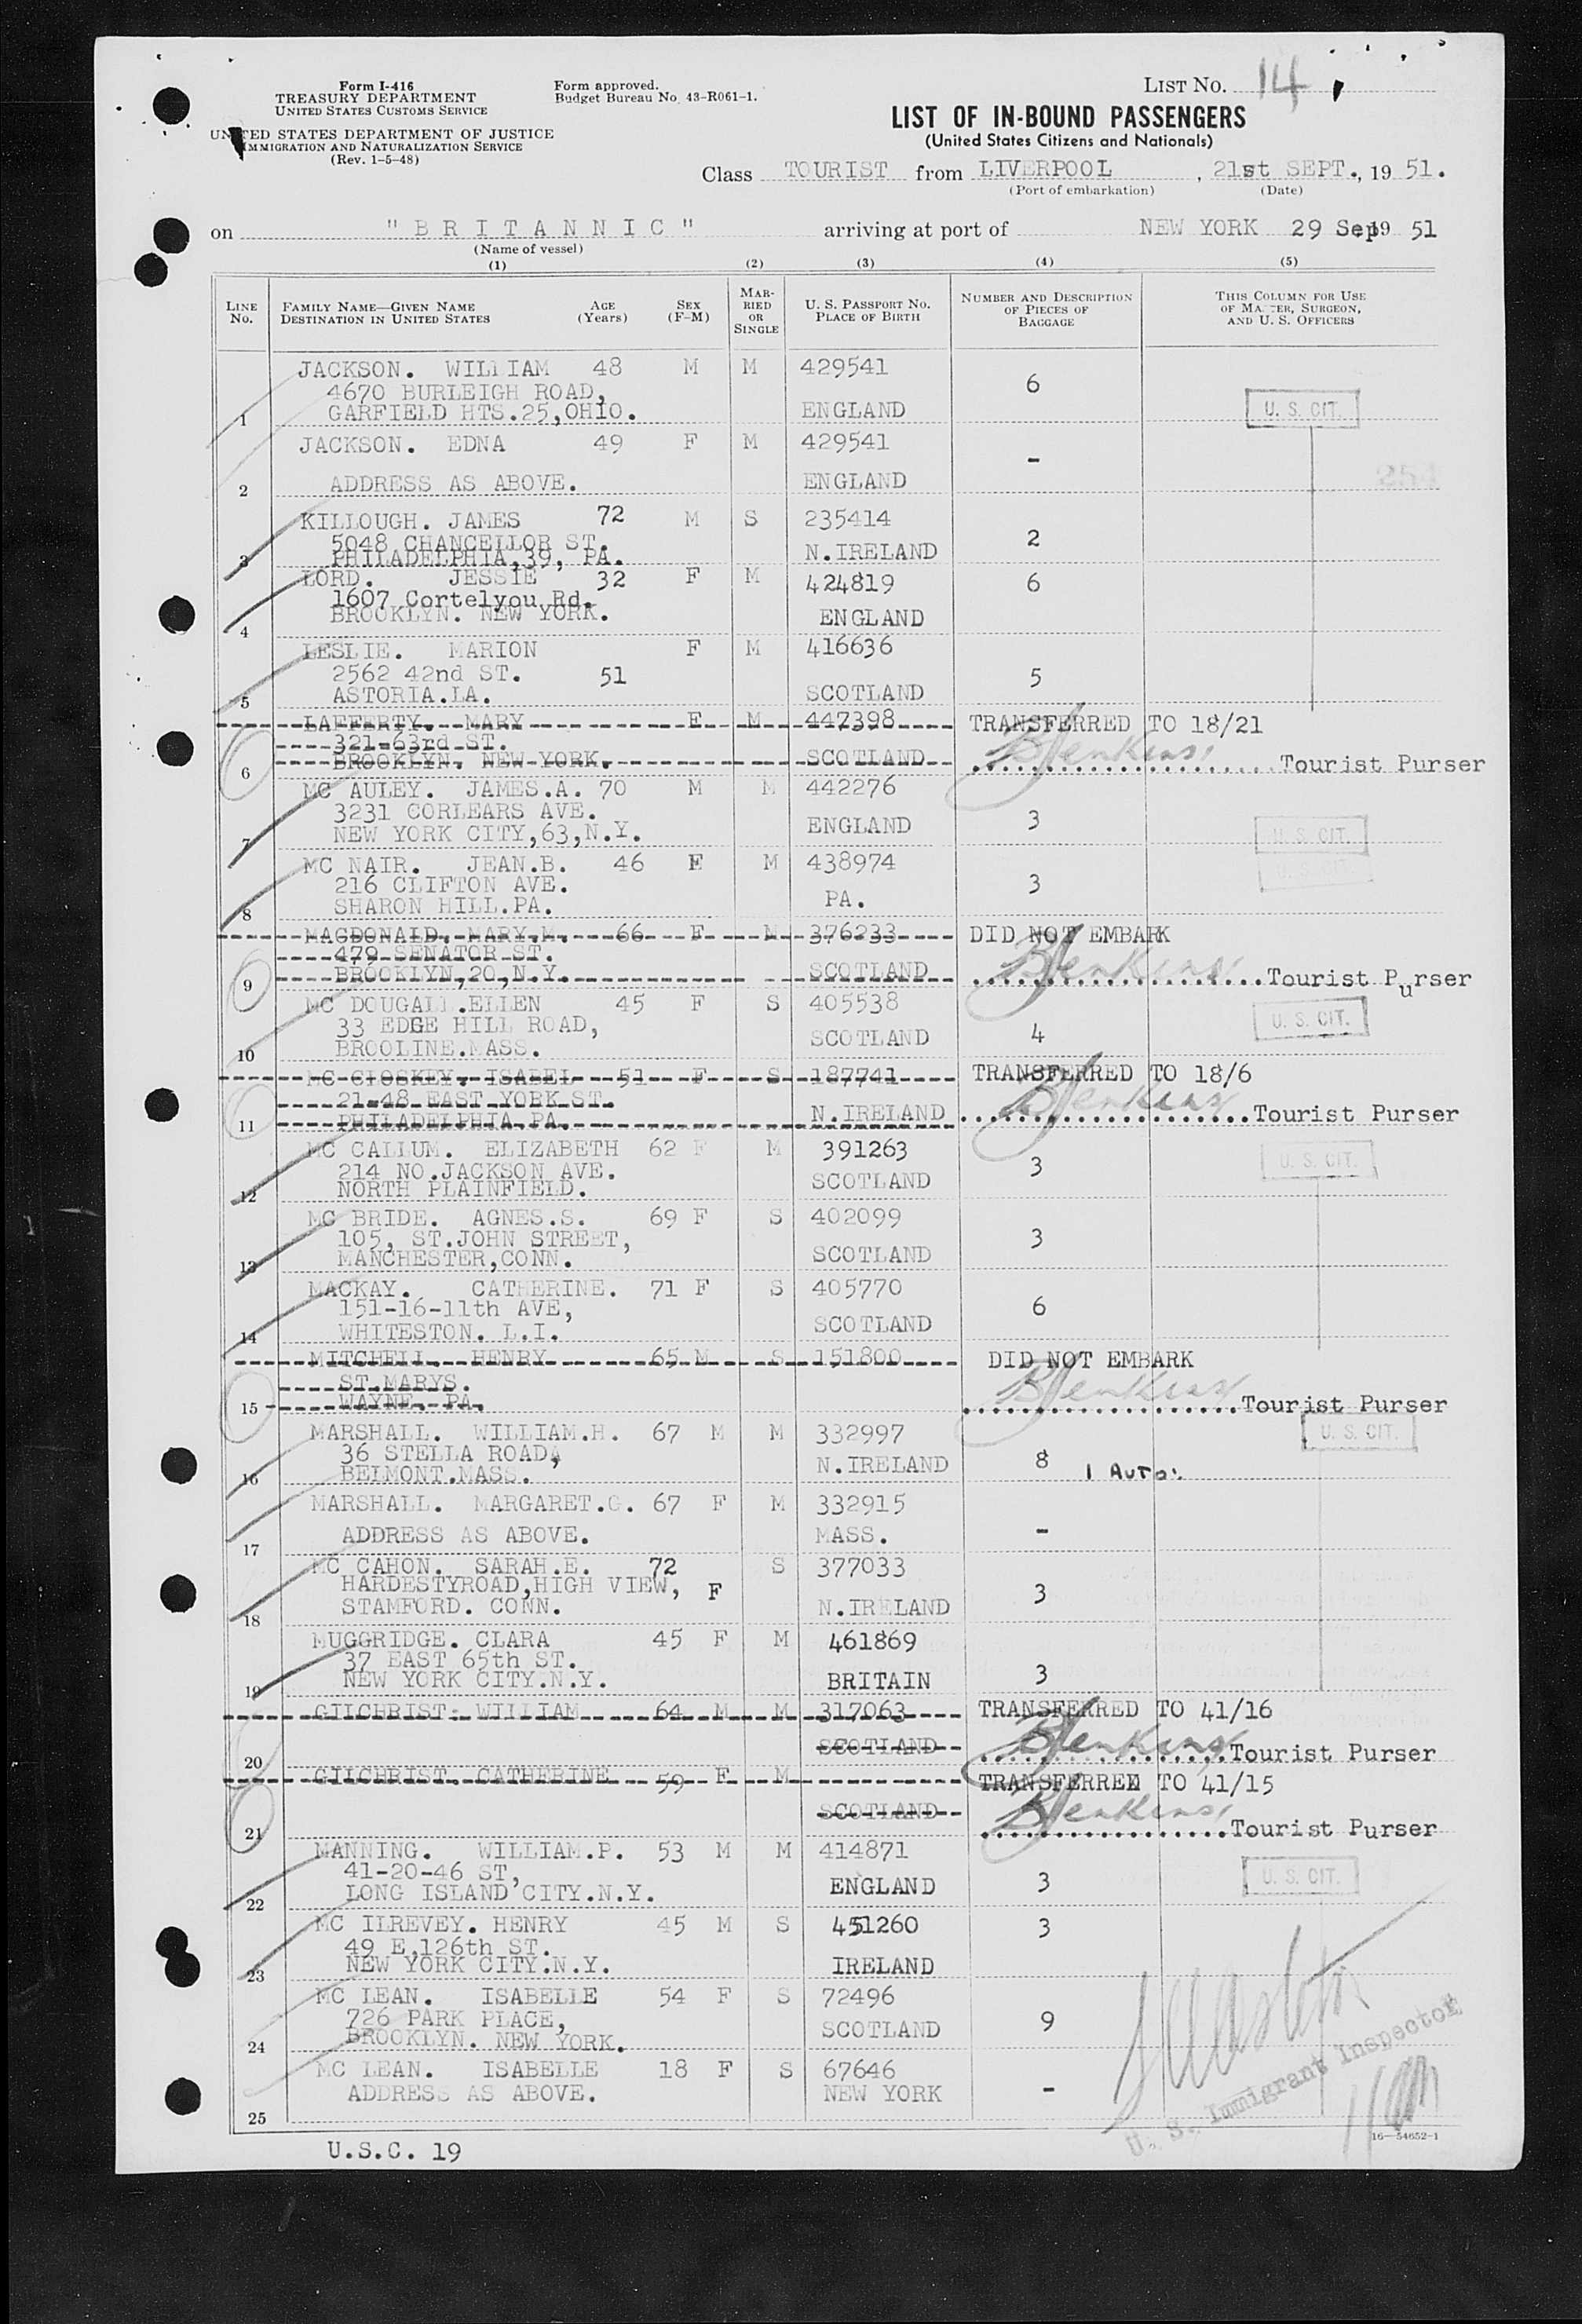 Form I-416
TREASURY DEPARTMENT
UNITED STATES CUSTOMS SERVICE
UNITED STATES DEPARTMENT OF JUSTICE
IMMIGRATION AND NATURALIZATION SERVICE
(Rev. 1-5-48)
Form approved.
Budget Bureau No. 43-R061-1.
LIST No. 14
LIST OF IN-BOUND PASSENGERS
(United States Citizens and Nationals)
Class TOURIST from LIVERPOOL, 21st SEPT., 19 51.
(Port of embarkation) (Date)
on "BRITANNIC" arriving at port of NEW YORK 29 Sep 19 51
(Name of vessel)
(1) (2) (3) (4) (5)
LINE No. FAMILY NAME—GIVEN NAME DESTINATION IN UNITED STATES AGE (Years) SEX (F-M) MARRIED OR SINGLE U. S. PASSPORT No. PLACE OF BIRTH NUMBER AND DESCRIPTION OF PIECES OF BAGGAGE THIS COLUMN FOR USE OF MASTER, SURGEON, AND U. S. OFFICERS
JACKSON. WILLIAM 48 M M 429541
4670 BURLEIGH ROAD, 6
1 GARFIELD HTS.25,OHIO. ENGLAND U. S. CIT.
JACKSON. EDNA 49 F M 429541
-
2 ADDRESS AS ABOVE. ENGLAND 254
KILLOUGH. JAMES 72 M S 235414
5048 CHANCELLOR ST. 2
3 PHILADELPHIA,39, PA. N.IRELAND
LORD. JESSIE 32 F M 424819 6
1607 Cortelyou Rd.
4 BROOKLYN. NEW YORK. ENGLAND
LESLIE. MARION F M 416636
2562 42nd ST. 51 5
5 ASTORIA.LA. SCOTLAND
LAFFERTY. MARY F M 447398 TRANSFERRED TO 18/21
321-63rd ST.
6 BROOKLYN. NEW YORK. SCOTLAND BJenkins Tourist Purser
MC AULEY. JAMES.A. 70 M M 442276
3231 CORLEARS AVE. 3
7 NEW YORK CITY,63,N.Y. ENGLAND U. S. CIT.
MC NAIR. JEAN.B. 46 F M 438974 U. S. CIT.
216 CLIFTON AVE. 3
8 SHARON HILL.PA. PA.
MACDONALD. MARY.M. 66 F M 376233 DID NOT EMBARK
479 SENATOR ST.
9 BROOKLYN,20,N.Y. SCOTLAND BJenkins Tourist Purser
MC DOUGALL.ELLEN 45 F S 405538
33 EDGE HILL ROAD, 4 U. S. CIT.
10 BROOLINE.MASS. SCOTLAND
MC CLOSKEY. ISABEL 51 F S 187741 TRANSFERRED TO 18/6
21-48 EAST YORK ST.
11 PHILADELPHIA.PA. N.IRELAND BJenkins Tourist Purser
MC CALLUM. ELIZABETH 62 F M 391263
214 NO.JACKSON AVE. 3 U. S. CIT.
12 NORTH PLAINFIELD. SCOTLAND
MC BRIDE. AGNES.S. 69 F S 402099
105, ST.JOHN STREET, 3
13 MANCHESTER,CONN. SCOTLAND
MACKAY. CATHERINE. 71 F S 405770
151-16-11th AVE, 6
14 WHITESTON. L.I. SCOTLAND
MITCHELL. HENRY 65 M S 151800 DID NOT EMBARK
ST.MARYS.
15 WAYNE. PA. BJenkins Tourist Purser
MARSHALL. WILLIAM.H. 67 M M 332997 U. S. CIT.
36 STELLA ROAD, 8 1 AUTO.
16 BELMONT.MASS. N.IRELAND
MARSHALL. MARGARET.G. 67 F M 332915
17 ADDRESS AS ABOVE. MASS. -
MC CAHON. SARAH.E. 72 S 377033
HARDESTYROAD,HIGH VIEW, F 3
18 STAMFORD. CONN. N.IRELAND
MUGGRIDGE. CLARA 45 F M 461869
37 EAST 65th ST. 3
19 NEW YORK CITY.N.Y. BRITAIN
GILCHRIST. WILLIAM 64 M M 317063 TRANSFERRED TO 41/16
20 SCOTLAND BJenkins Tourist Purser
GILCHRIST. CATHERINE 59 F M TRANSFERRED TO 41/15
21 SCOTLAND BJenkins Tourist Purser
MANNING. WILLIAM.P. 53 M M 414871
41-20-46 ST, 3 U. S. CIT.
22 LONG ISLAND CITY.N.Y. ENGLAND
MC ILREVEY. HENRY 45 M S 451260 3
49 E,126th ST.
23 NEW YORK CITY.N.Y. IRELAND
MC LEAN. ISABELLE 54 F S 72496
726 PARK PLACE, 9
24 BROOKLYN. NEW YORK. SCOTLAND
MC LEAN. ISABELLE 18 F S 67646
ADDRESS AS ABOVE. NEW YORK -
25
U. S. Immigrant Inspector
16—54652-1
U.S.C. 19